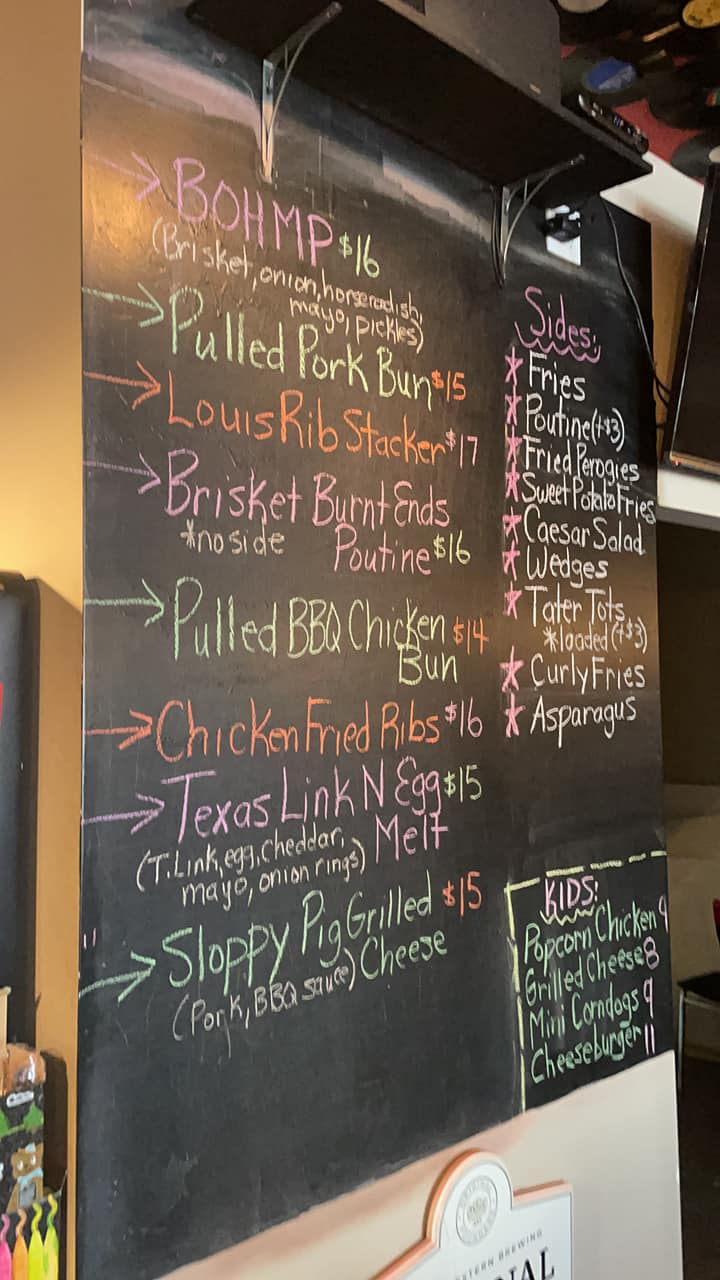 BOHMP $16
(Brisket, onion, horseradish,
mayo, pickles)
Pulled Pork Bun $15
Louis Rib Stacker $17
Brisket Burnt Ends
*no side Poutine $16
Pulled BBQ Chicken $14
Bun
Chicken Fried Ribs $16
Texas Link N Egg $15
Melt
(T.Link, egg, cheddar,
mayo, onion rings)
Sloppy Pig Grilled $15
Cheese
(Pork, BBQ sauce)
Sides:
Fries
Poutine (+$3)
Fried Perogies
Sweet Potato Fries
Caesar Salad
Wedges
Tater Tots
*loaded (+$3)
Curly Fries
Asparagus
KIDS:
Popcorn Chicken 9
Grilled Cheese 8
Mini Corndogs 9
Cheeseburger 11